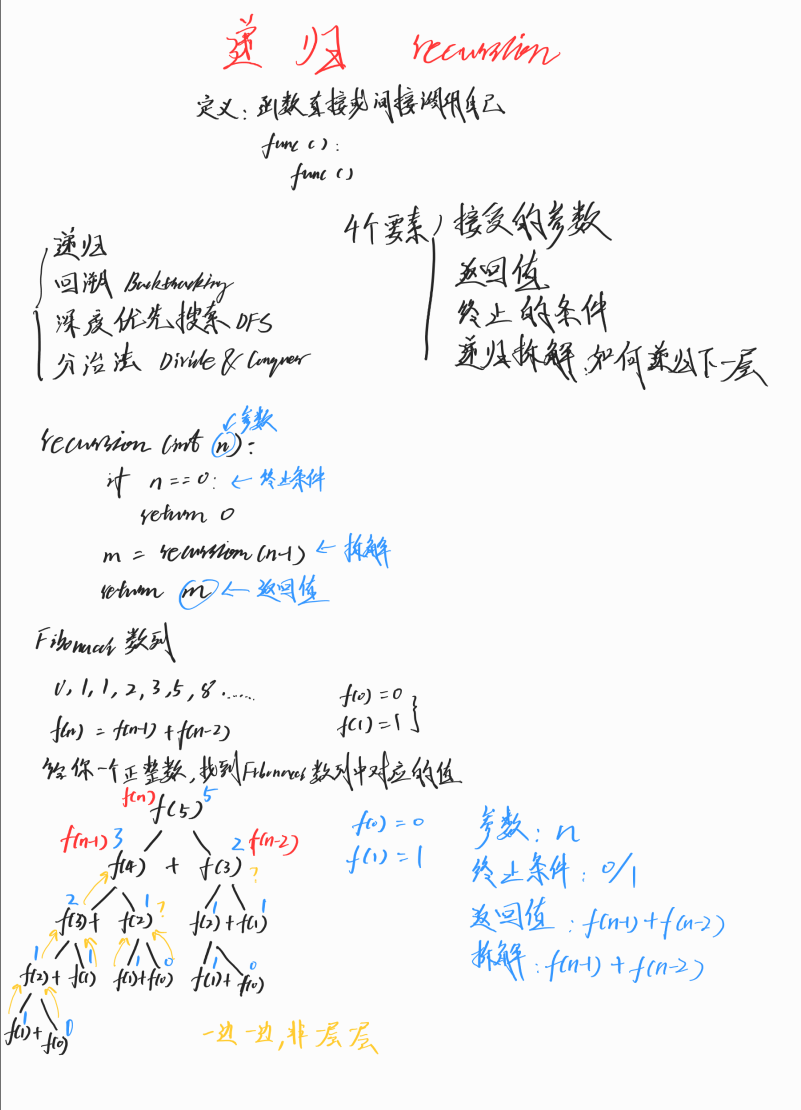 递归 recursion
定义：函数直接或间接调用自己
func():
func()
递归
回溯 Backtracking
深度优先搜索 DFS
分治法 Divide & Conquer
4个要素 接受的参数
返回值
终止的条件
递归拆解:如何递归下一层
参数
recursion (int n):
if n==0: ← 终止条件
return 0
m = recursion(n-1) ← 拆解
return m ← 返回值
Fibonacci 数列
0, 1, 1, 2, 3, 5, 8 ......
f(n) = f(n-1) + f(n-2)
f(0) = 0
f(1) = 1
给你一个正整数,找到Fibonacci数列中对应的值
f(n) f(5) 5
f(n-1) 3 2 f(n-2)
f(4) + f(3) ?
2 1 ?
f(3) + f(2) f(2) + f(1)
1 1 1 1
f(2) + f(1) f(1) + f(0) f(1) + f(0)
1 1 0 1 0
f(1) + f(0)
1 0
一边一边,非一层层
f(0) = 0
f(1) = 1
参数: n
终止条件: 0/1
返回值: f(n-1) + f(n-2)
拆解: f(n-1) + f(n-2)